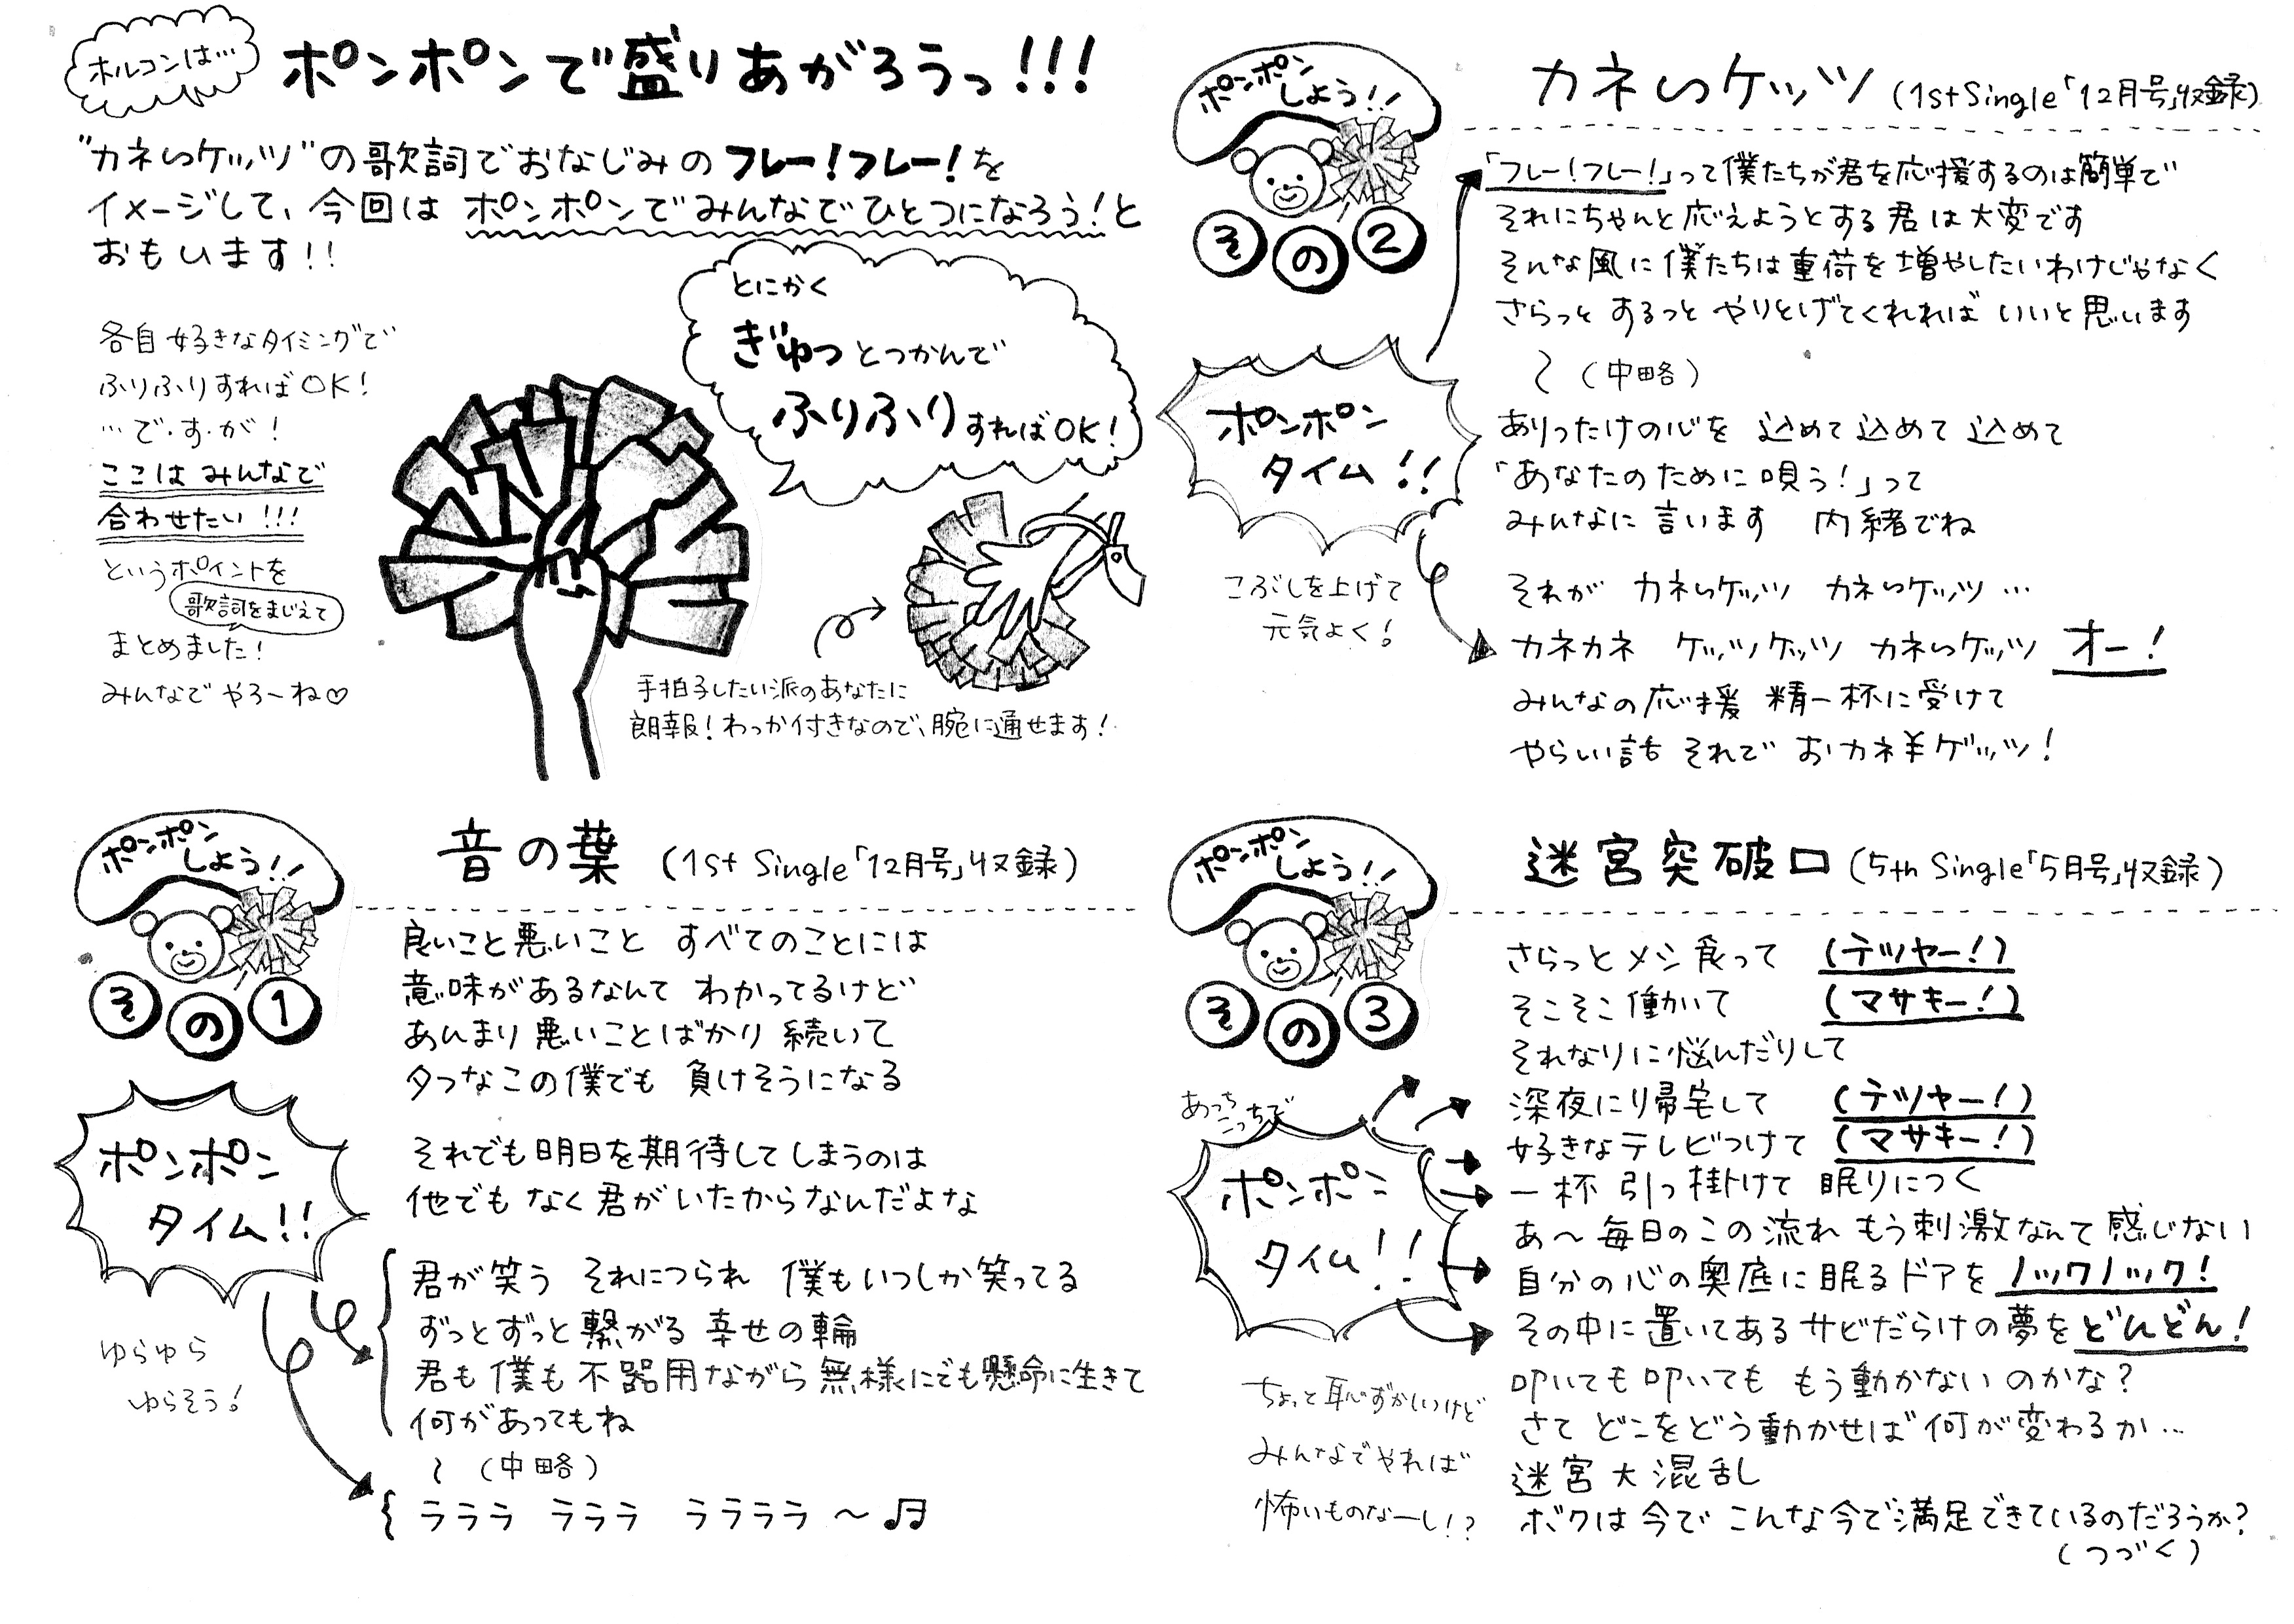 ホルコンは…
ポンポンで盛りあがろうっ!!!
"カネってケッツ"の歌詞でおなじみのフレー!フレー!を
イメージして、今回はポンポンでみんなでひとつになろう!と
おもいます!!
とにかく
ぎゅっとつかんで
ふりふりすればOK!
各自好きなタイミングで
ふりふりすればOK!
…で・す・が!
ここはみんなで
合わせたい!!!
というポイントを
歌詞をまじえて
まとめました!
みんなでやろーね♡
手拍子したい派のあなたに
朗報!わっか付きなので、腕に通せます!
ポンポン
しよう!!
その1
音の葉(1st Single「12月号」収録)
良いこと悪いこと すべてのことには
意味があるなんて わかってるけど
あんまり悪いことばかり続いて
タフなこの僕でも 負けそうになる
それでも明日を期待してしまうのは
他でもなく君がいたからなんだよな
ポンポン
タイム!!
ゆらゆら
ゆらそう!
君が笑う それにつられ 僕もいつしか笑ってる
ずっとずっと繋がる 幸せの輪
君も僕も不器用ながら無様にでも懸命に生きて
何があってもね
～(中略)
ラララ ラララ ララララ～♬
ポンポン
しよう!!
その2
カネってケッツ(1st Single「12月号」収録)
「フレー!フレー!」って僕たちが君を応援するのは簡単で
それにちゃんと応えようとする君は大変です
そんな風に僕たちは重荷を増やしたいわけじゃなく
さらっと するっと やりとげてくれれば いいと思います
～(中略)
ありったけの心を 込めて込めて込めて
「あなたのために唄う!」って
みんなに言います 内緒でね
ポンポン
タイム!!
こぶしを上げて
元気よく!
それが カネってケッツ カネってケッツ…
カネカネ ケッツケッツ カネってケッツ オー!
みんなの応援 精一杯に受けて
やらしい話 それで おカネ¥ゲッツ!
ポンポン
しよう!!
その3
迷宮突破口(5th Single「5月号」収録)
さらっとメシ食って (テツヤー!)
そこそこ働いて (マサキー!)
それなりに悩んだりして
深夜に帰宅して (テツヤー!)
好きなテレビつけて (マサキー!)
一杯引っ掛けて 眠りにつく
あ～毎日のこの流れ もう刺激なんて感じない
自分の心の奥底に眠るドアをノックノック!
その中に置いてあるサビだらけの夢をどんどん!
叩いても叩いても もう動かないのかな?
さて どこをどう動かせば何が変わるか…
迷宮大混乱
ボクは今で こんな今で満足できているのだろうか?
(つづく)
あっち
こっちで
ポンポン
タイム!!
ちょっと恥ずかしいけど
みんなでやれば
怖いものなーし!?